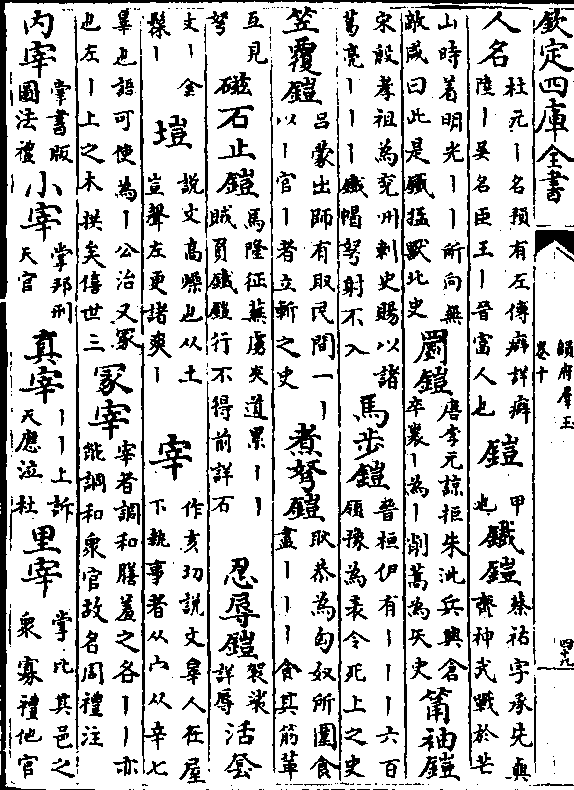 欽定四庫全書
韻府羣玉
卷十
四十九
人名
杜元丨名預有左傳癖詳癖
陸丨吳名臣王丨晉富人也
鎧
甲
也
鐵鎧
蔡祐字承先與
齊神武戰於芒
山時着明光丨丨所向無
敵咸曰此是鐵猛獸北史
罽鎧
唐李元諒拒朱泚兵與倉
卒裂丨為丨削蒿為矢史
筩袖鎧
宋殷孝祖為兖州刺史賜以諸
葛亮丨丨丨鐵帽弩射不入
馬步鎧
晉桓伊有丨丨丨六百
領豫為表令死上之史
笠覆鎧
呂蒙出師有取民間一丨
以丨官丨者立斬之史
煮弩鎧
耿恭為匈奴所圍食
盡丨丨丨食其筋革
互見
弩
磁石止鎧
馬隆征蕪虜夾道累丨丨
賊負鐵鎧行不得前詳石
忍辱鎧
袈裟
詳辱
活套
文丨金
髹丨
塏
說文高燥也从土
豈聲左更諸爽丨
宰
作亥切說文辠人在屋
下執事者从宀从辛七
辠也語可使為丨公冶又冢
也左丨上之木拱矣僖世三
冢宰
宰者調和膳羞之名丨丨亦
能調和衆官故名周禮注
内宰
掌書版
圖法禮
小宰
掌邦刑
天官
真宰
丨丨上訴
天應泣杜
里宰
掌比其邑之
衆寡禮他官